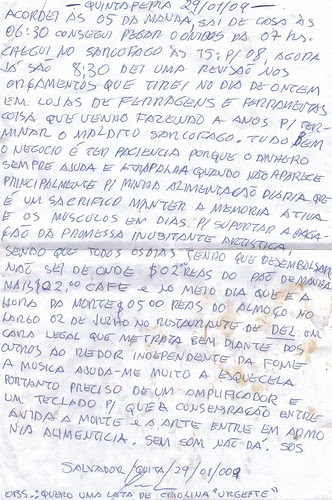 - QUINTAFEIRA 29/01/09 -
ACORDEI ÀS 05 DA MANHÃ, SAI DE CASA ÀS
06:30 CONSEGUI PEGAR O ONIBUS DA 07 HS.
CHEGUI NO SARCOFAGO ÀS 15: P/ 08, AGORA
JÁ SÃO 8;30 DEI UMA REVISÃO NOS
ORÇAMENTOS QUE TIREI NO DIA DE ONTEM
EM LOJAS DE FERRAGENS E FERRAMENTAS
COISA QUE VENHO FAZENDO A ANOS P/ TER-
MINAR O MALDITO SARCOFAGO. TUDO BEM
O NEGOCIO É TER PACIENCIA PORQUE O DINHEIRO
SEMPRE AJUDA E ATRAPANHA QUANDO NÃO APARECE
PRINCIPALMENTE P/ MINHA ALIMENTAÇÃO DIARIA QUE
É UM SACRIFICO MANTER A MEMORIA ATIVA
E OS MUSCULOS EM DIAS P/ SUPORTAR A PAGA-
ÇÃO DA PROMESSA INUSITANTE ARTISTICA,
SENDO QUE TODOS OS DIAS TENHO QUE DESEMBOLSAR
NÃO SEI DE ONDE $02 REAS DO PÃO DE MANHÃ
MAIS $22,00 CAFE E NO MEIO DIA QUE E A
HORA DA MORTE $05 00 REAS DO ALMOÇO NO
LARGO 02 DE JULHO NO RUSTAURANTE DE DEL UM
CARA LEGAL QUE METRATA BEM DIANTE DOS
OUTROS AO REDOR INDEPENDENTE DA FOME
A MUSICA AJUDA-ME MUITO A ESQUECELA
PORTANTO PRECISO DE UM AMPLIFICADOR E
UM TECLADO P/ QUE A CONSENRAÇÃO ENTRE
A VIDA A MORTE E A ARTE ENTRE EM ARMO
NIA ALIMENTICIA. SEM SOM NÃO DÁ. SOS
SALVADOR/QUITA/29/01/009
OBS.: QUERO UMA LATA DE CRIOLINA "URGEFTE"